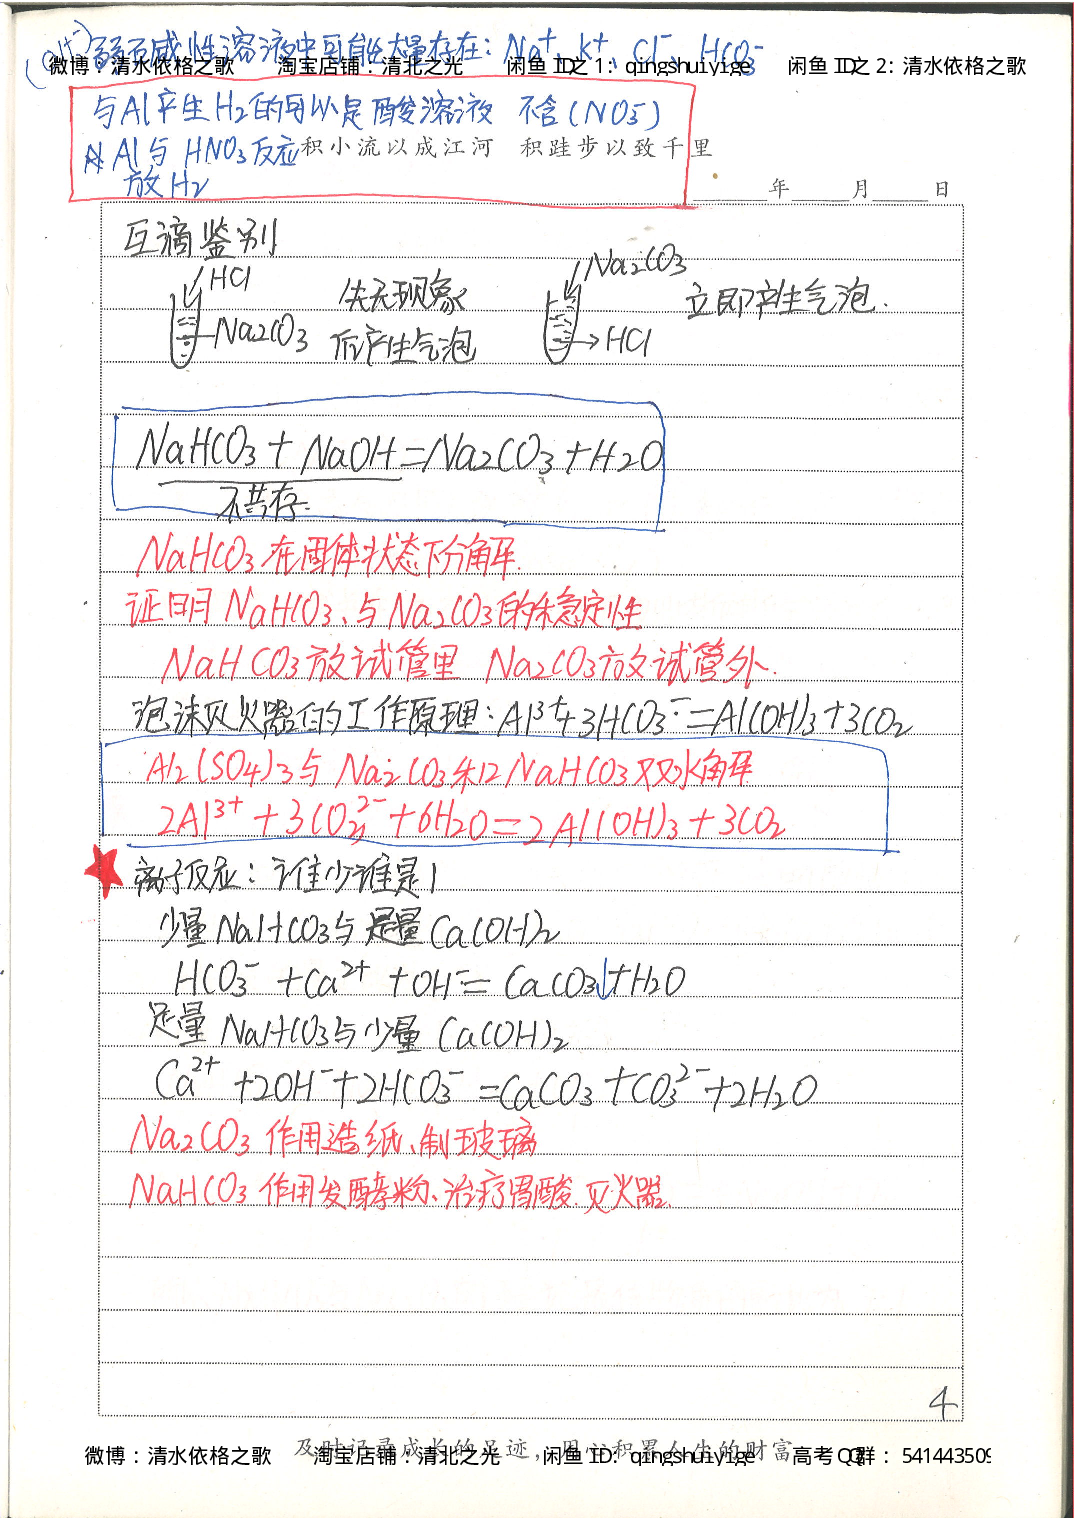 (OH⁻) 弱碱性溶液中可能大量存在: Na⁺, K⁺, Cl⁻, HCO₃⁻
微博：清水依格之歌 淘宝店铺：清北之光 闲鱼ID之1：qingshuiyige 闲鱼ID之2：清水依格之歌
与Al产生H₂的可以是酸溶液 不含(NO₃⁻)
Al与HNO₃反应
放H₂
积小流以成江河 积跬步以致千里
年 月 日
互滴鉴别
HCl
Na₂CO₃
先无现象
后产生气泡
Na₂CO₃
HCl
立即产生气泡.
NaHCO₃+NaOH=Na₂CO₃+H₂O
不共存.
NaHCO₃在固体状态下分解.
证明NaHCO₃、与Na₂CO₃的稳定性
NaHCO₃放试管里 Na₂CO₃放试管外.
泡沫灭火器的工作原理: Al³⁺+3HCO₃⁻=Al(OH)₃+3CO₂
Al₂(SO₄)₃与Na₂CO₃和NaHCO₃双水解
2Al³⁺+3CO₃²⁻+6H₂O=2Al(OH)₃+3CO₂
离子反应: 谁少谁是1
少量NaHCO₃与足量Ca(OH)₂
HCO₃⁻+Ca²⁺+OH⁻=CaCO₃↓+H₂O
足量NaHCO₃与少量Ca(OH)₂
Ca²⁺+2OH⁻+2HCO₃⁻=CaCO₃+CO₃²⁻+2H₂O
Na₂CO₃作用造纸、制玻璃
NaHCO₃作用发酵粉、治疗胃酸.灭火器.
4
及时记录成长的足迹，用心积累人生的财富
微博：清水依格之歌 淘宝店铺：清北之光 闲鱼ID：qingshuiyige 高考QQ群：541443509